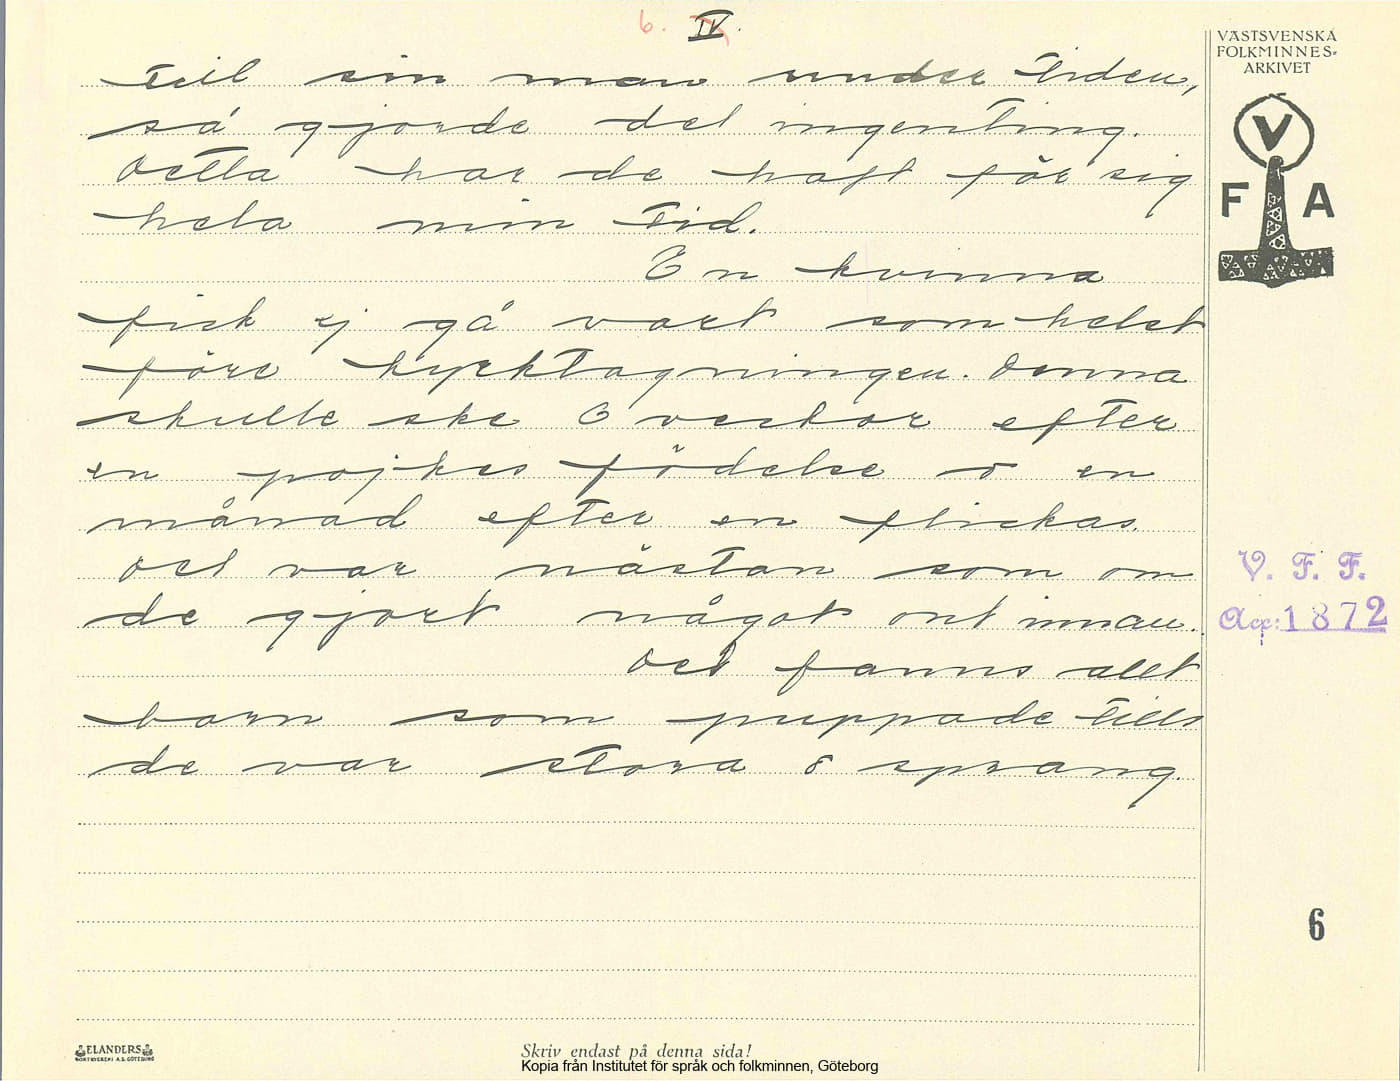 6. IV.
VÄSTSVENSKA
FOLKMINNES-
ARKIVET
V
F A
till sin man under tiden,
så gjorde det ingenting.
Detta har de haft för sig
hela min tid.
En kvinna
fick ej gå vart som helst
före kyrktagningen. Denna
skulle ske 6 veckor efter
en pojkes födelse o en
månad efter en flickas.
Det var nästan som om
de gjort något ont innan.
V. F. F.
Acc: 1872
Det fanns allt
barn som puppade tills
de var stora o sprang.
6
ELANDERS
BOKTRYCKERI A.B. GÖTEBORG
Skriv endast på denna sida!
Kopia från Institutet för språk och folkminnen, Göteborg